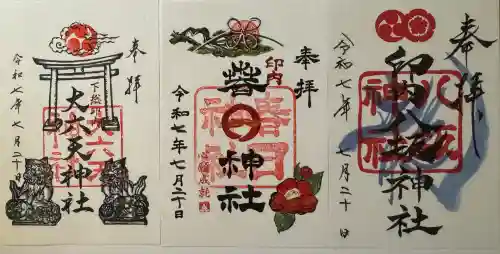 奉拝
下総
大六天神社
令和七年七月二十日
奉拝
印内
春日神社
令和七年七月二十日
奉拝
印内八坂神社
八坂神社
令和七年
七月二十日